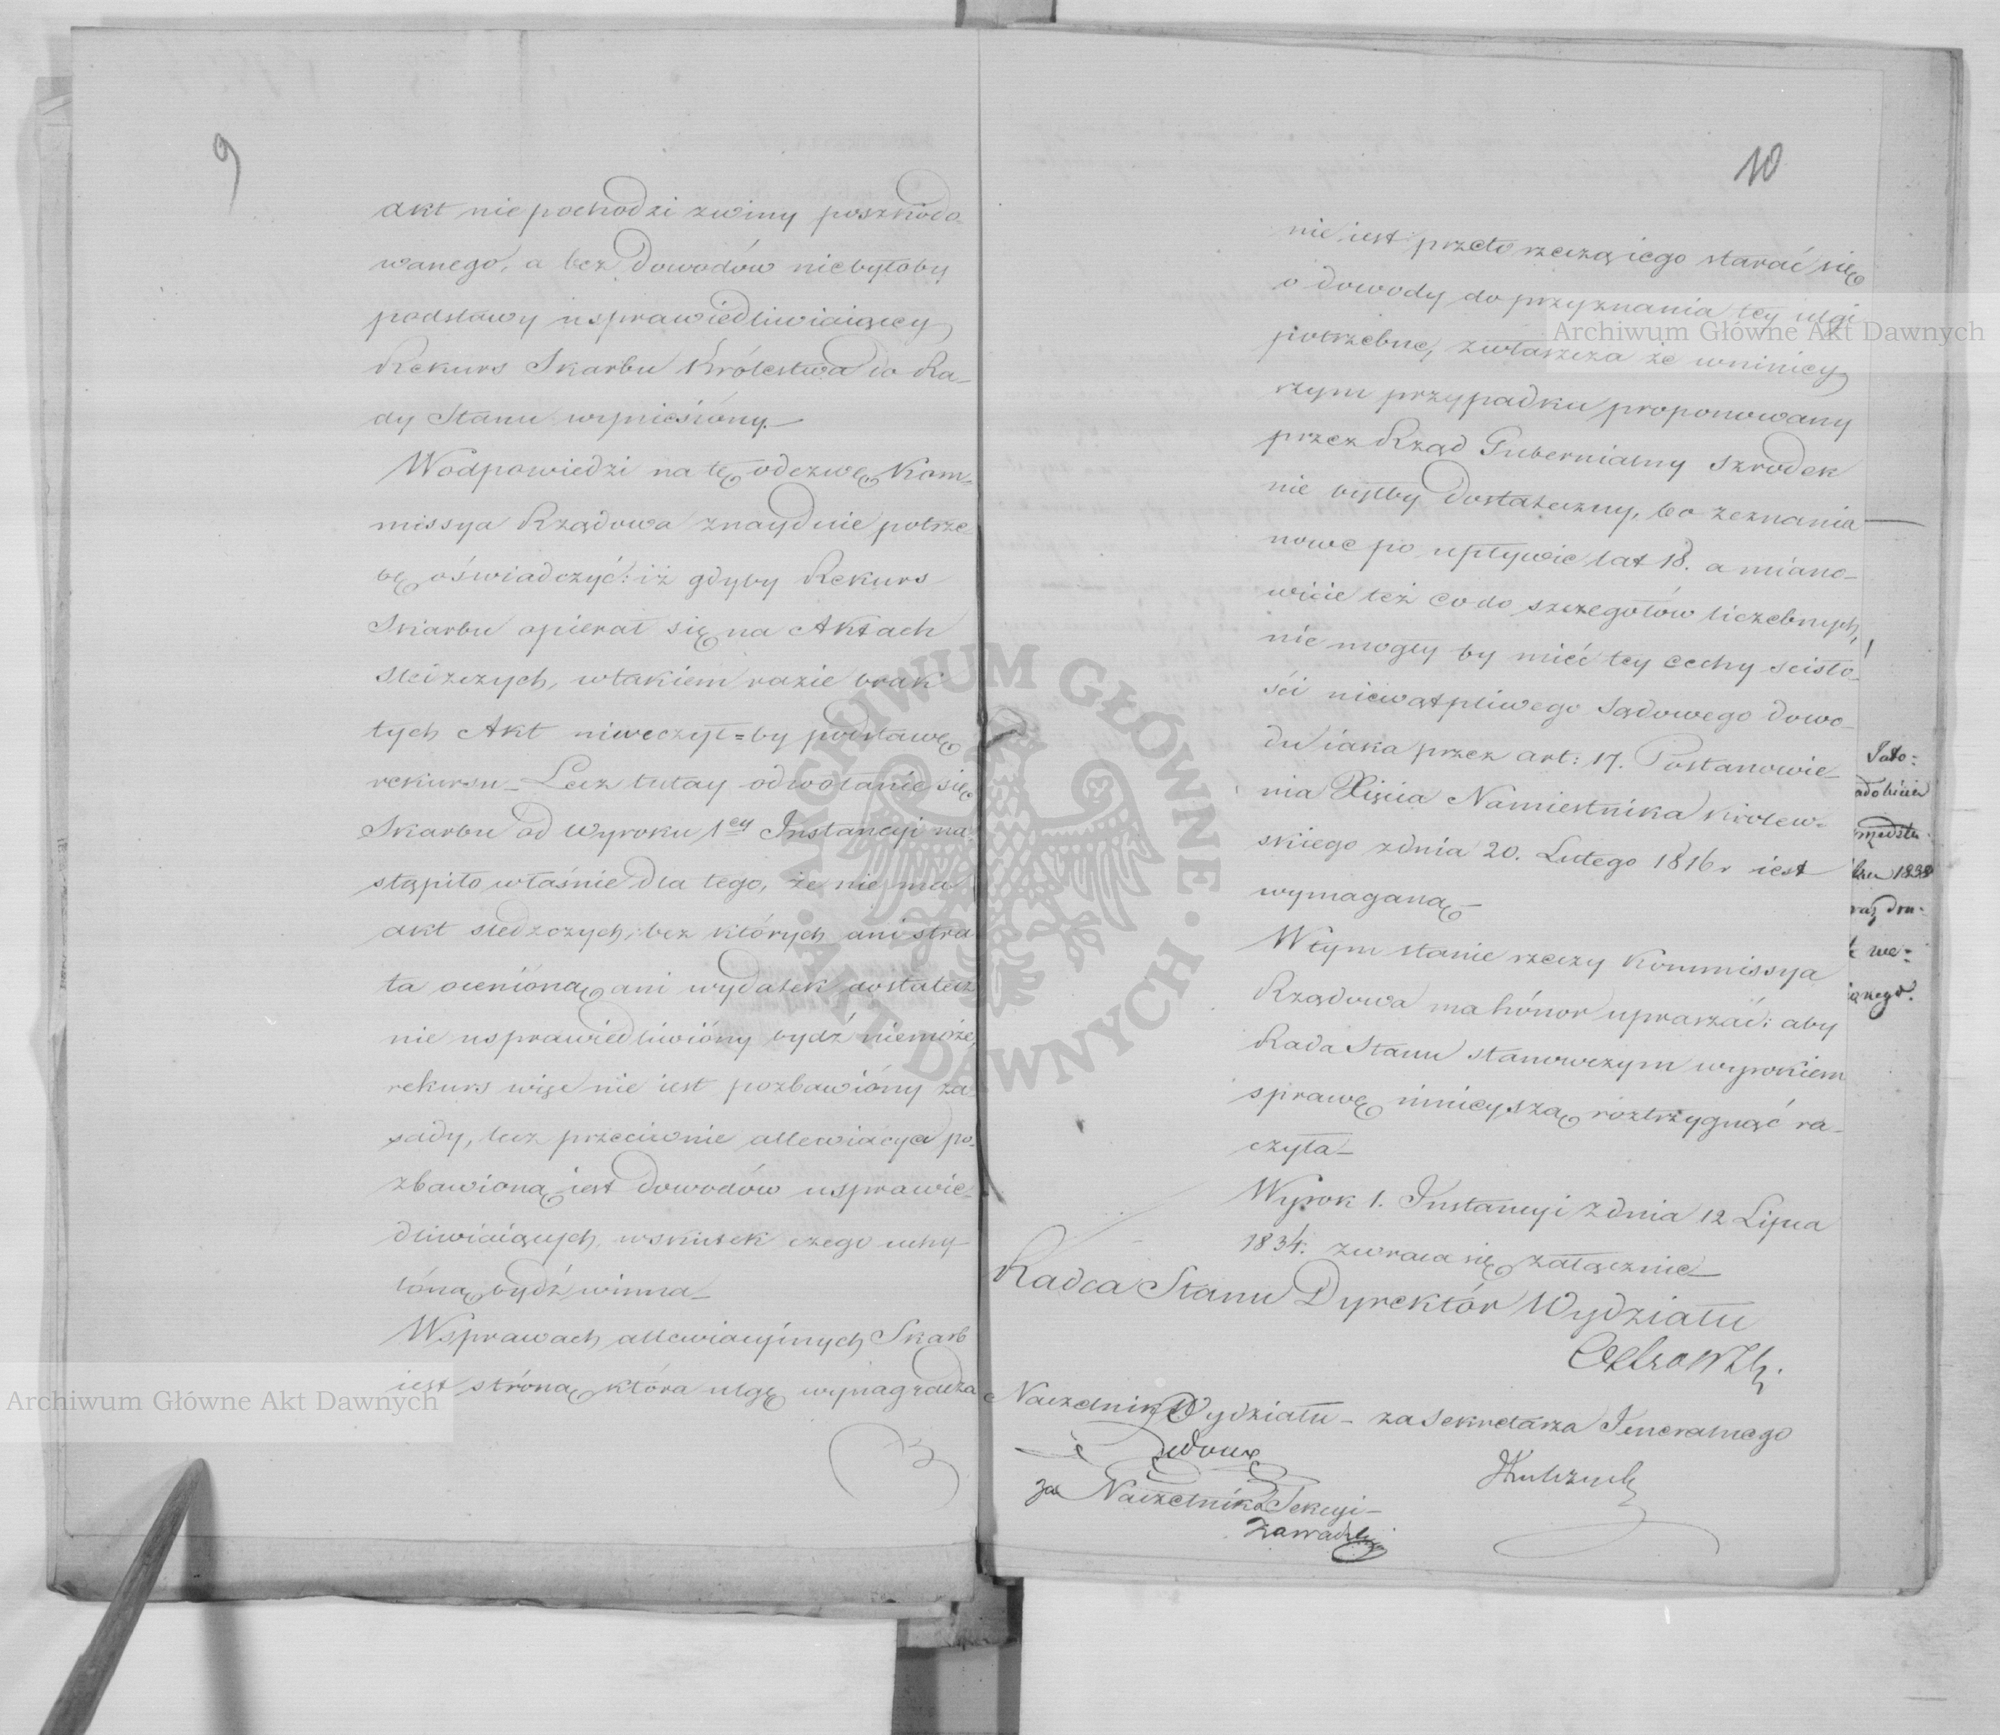 9
akt nie pochodzi zwiny poszkodo-
wanego, a bez dowodów niebyłoby
podstawy usprawiedliwiaiącey
Rekurs Skarbu Królestwa do Ra-
dy Stanu wyniesióny.
Wodpowiedzi na tę odezwę Kom-
missya Rządowa znayduie potrze
bę oświadczyć: iż gdyby Rekurs
Skarbu opierał się na Aktach
śledczych, wtakiem razie brak
tych Akt niweczył=by podstawę
rekursu_ Lecz tutay odwołanie się
Skarbu od Wyroku 1ey Instancyi na
stąpiło właśnie dla tego, że nie ma
akt śledczych, bez których ani stra
ta ocenióną, ani wydatek dostatecz
nie usprawiedliwióny bydź niemoże,
rekurs więc nie iest pozbawióny za
sady, lecz przeciwnie allewiacya po-
zbawioną iest dowodów usprawie-
dliwiaiących, wskutek czego uchy-
lóną bydź winna_
Wsprawach allewiacyinych Skarb
iest stróną, która ulgę wynagradza
10
nie iest przeto rzeczą iego starać się
o dowody do przyznania tey ulgi
potrzebne, zwłaszcza że wniniey
szym przypadku proponowany
przez Rząd Gubernialny szrodek
nie byłby dostateczny, bo zeznania
nowe po upływie lat 18. a miano-
wicie też codo szczegołów liczebnych,
nie mogły by mieć tey cechy scisło-
ści niewątpliwego Sądowego dowo-
du iaka przez art: 17. Postanowie-
nia Xięcia Namiestnika Królew-
skiego zdnia 20. Lutego 1816 r iest
wymaganą_
Wtym stanie rzeczy Kommissya
Rządowa ma hónor upraszać: aby
Rada Stanu stanowczym wyrokiem
sprawę ninieyszą roztrzygnąć ra-
czyła_
Wyrok 1. Instancyi zdnia 12 Lipca
1834. zwraca się załącznie_
Radca Stanu Dyrektór Wydziału
Naczelnik Wydziału_ za Sekretarza Jeneralnego
za Naczelnika Sekcyi_
Zawadzki
Archiwum Główne Akt Dawnych
Archiwum Główne Akt Dawnych
ARCHIWUM GŁÓWNE · AKT DAWNYCH ·